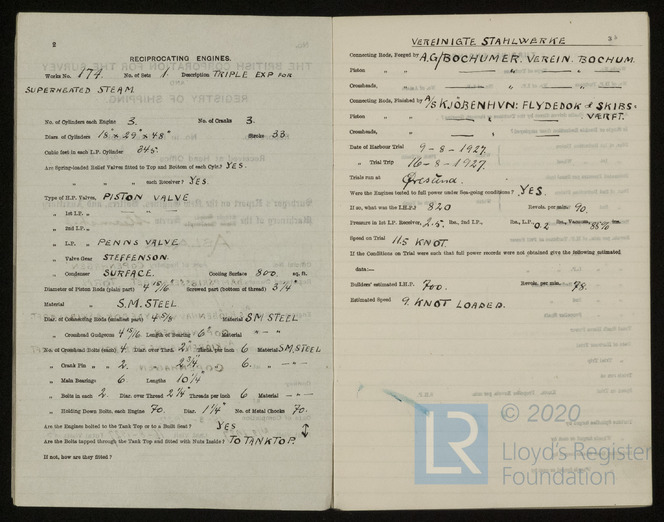 2
RECIPROCATING ENGINES.
Works No. 174. No. of Sets 1 Description TRIPLE EXP FOR
SUPERHEATED STEAM.
No. of Cylinders each Engine 3. No. of Cranks 3.
Diars. of Cylinders 18" x 29" x 48" Stroke 33
Cubic feet in each L.P. Cylinder 345.
Are Spring-loaded Relief Valves fitted to Top and Bottom of each Cylr.? YES.
" " " each Receiver? YES
Type of H.P. Valves, PISTON VALVE
" 1st I.P. " — " —
" 2nd I.P. "
" L.P. " PENNS VALVE
" Valve Gear STEFFENSON.
" Condenser SURFACE. Cooling Surface 800. sq. ft.
Diameter of Piston Rods (plain part) 4 15/16" Screwed part (bottom of thread) 3 1/4"
Material " S.M. STEEL
Diar. of Connecting Rods (smallest part) 4 5/8 Material SM STEEL
" Crosshead Gudgeons 4 15/16 Length of Bearing 6" Material — " —
No. of Crosshead Bolts (each) 4. Diar. over Thrd. 2" Thrds. per inch 6 Material S.M. STEEL
" Crank Pin " " 2. " 2 3/4" " 6. " — " —
" Main Bearings 6 Lengths 10 1/4"
" Bolts in each 2. Diar. over Thread 2 1/4" Threads per inch 6 Material — " —
" Holding Down Bolts, each Engine 70. Diar. 1 1/4" No. of Metal Chocks 70.
Are the Engines bolted to the Tank Top or to a Built Seat? YES
Are the Bolts tapped through the Tank Top and fitted with Nuts Inside? TO TANKTOP.
If not, how are they fitted?
VEREINIGTE STAHLWERKE
Connecting Rods, Forged by A.G/BOCHUMER. VEREIN. BOCHUM.
Piston " " — " —
Crossheads, " — " —
Connecting Rods, Finished by A/S KJÖBENHVN: FLYDEDOK & SKIBS-
VÆRFT.
Piston " " — " —
Crossheads, " — " —
Date of Harbour Trial 9-8-1927.
" Trial Trip 16-8-1927.
Trials run at Øresund.
Were the Engines tested to full power under Sea-going conditions? YES.
If so, what was the I.H.P.? 820 Revols. per min. 90.
Pressure in 1st I.P. Receiver, 2.5. lbs., 2nd I.P., lbs., L.P., 0.2 lbs., Vacuum, 88% ins.
Speed on Trial 11.5 KNOT.
If the Conditions on Trial were such that full power records were not obtained give the following estimated
data:—
Builders' estimated I.H.P. 700. Revols. per min. 78.
Estimated Speed 9. KNOT LOADED.
LR © 2020
Lloyd's Register
Foundation